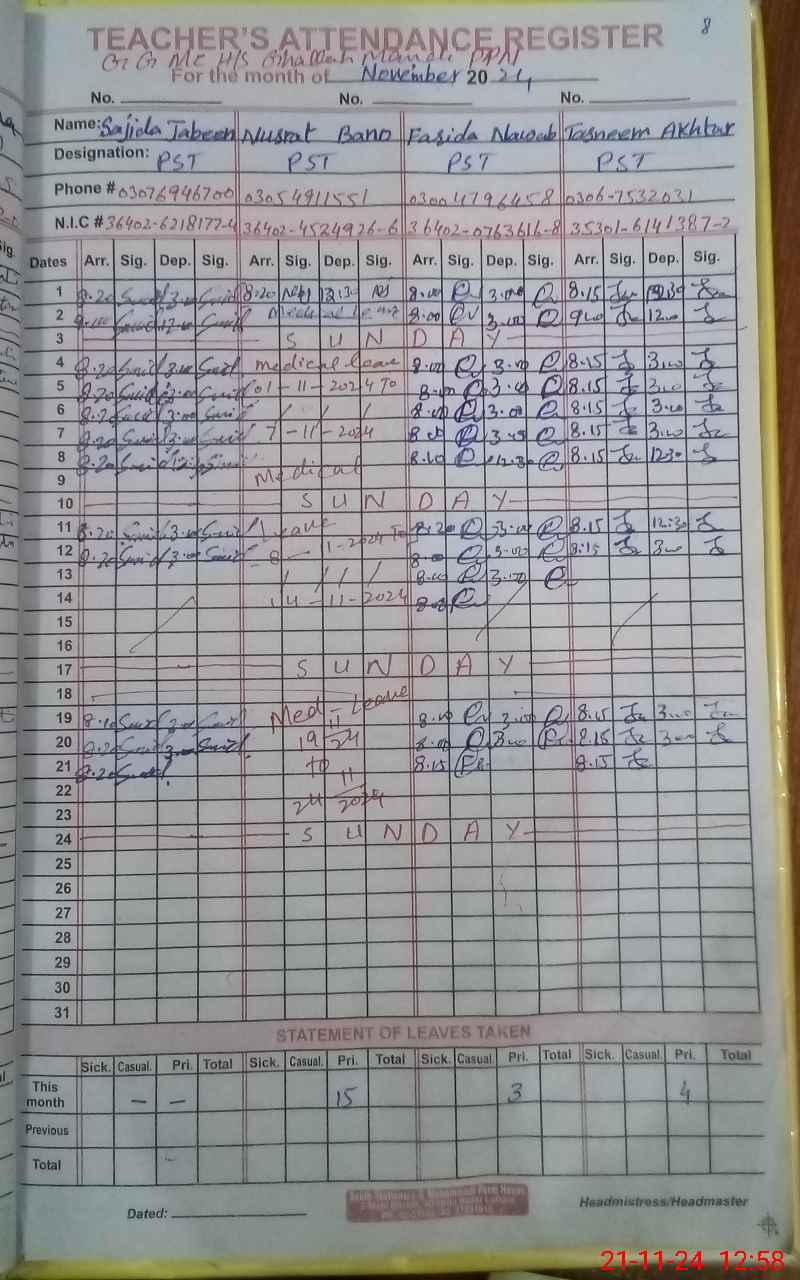 8
TEACHER'S ATTENDANCE REGISTER
For the month of November 2024
No. No. No.
Name: Sajida Jabeen Nusrat Bano Farida Nawab Tasneem Akhtar
Designation: PST PST PST PST
Phone # 03076946700 03054911551 03004796458 0306-7532031
N.I.C # 36402-6218177-4 36402-4524926-6 36402-0763616-8 35301-6141387-2
Dates Arr. Sig. Dep. Sig. Arr. Sig. Dep. Sig. Arr. Sig. Dep. Sig. Arr. Sig. Dep. Sig.
1 8.20 3.00 8.20 12:30 8.00 3.00 8.15
2 12.00 Medical Leave 8.00 3.00 9.00 12.00
3 S U N D A Y
4 8.20 3.00 medical leave 8.00 3.00 8.15 3.00
5 8.20 3.00 01-11-2024 To 8.00 3.00 8.15 3.00
6 8.20 3.00 / / / 8.00 3.00 8.15 3.00
7 8.20 3.00 7-11-2024 8.00 3.00 8.15 3.00
8 8.20 8.00 12.30 8.15 1230
9 Medical
10 S U N D A Y
11 8.20 3.00 Leave 8.20 3.00 8.15 12:30
12 8.20 3.00 8-11-2024 To 8.00 3.00 8:15 3.00
13 / / / / 8.00 3.00
14 14-11-2024 8.00
15
16
17 S U N D A Y
18
19 8.20 3.00 Med-Leave 8.00 3.00 8.15 3.00
20 8.20 3.00 19 11 24 8.00 3.00 8.15 3.00
21 8.20 to 8.15 8.15
22 24 11 2024
23
24 S U N D A Y
25
26
27
28
29
30
31
STATEMENT OF LEAVES TAKEN
Sick. Casual. Pri. Total Sick. Casual. Pri. Total Sick. Casual. Pri. Total Sick. Casual. Pri. Total
This month – – 15 3 4
Previous
Total
Dated: Headmistress/Headmaster
21-11-24 12:58